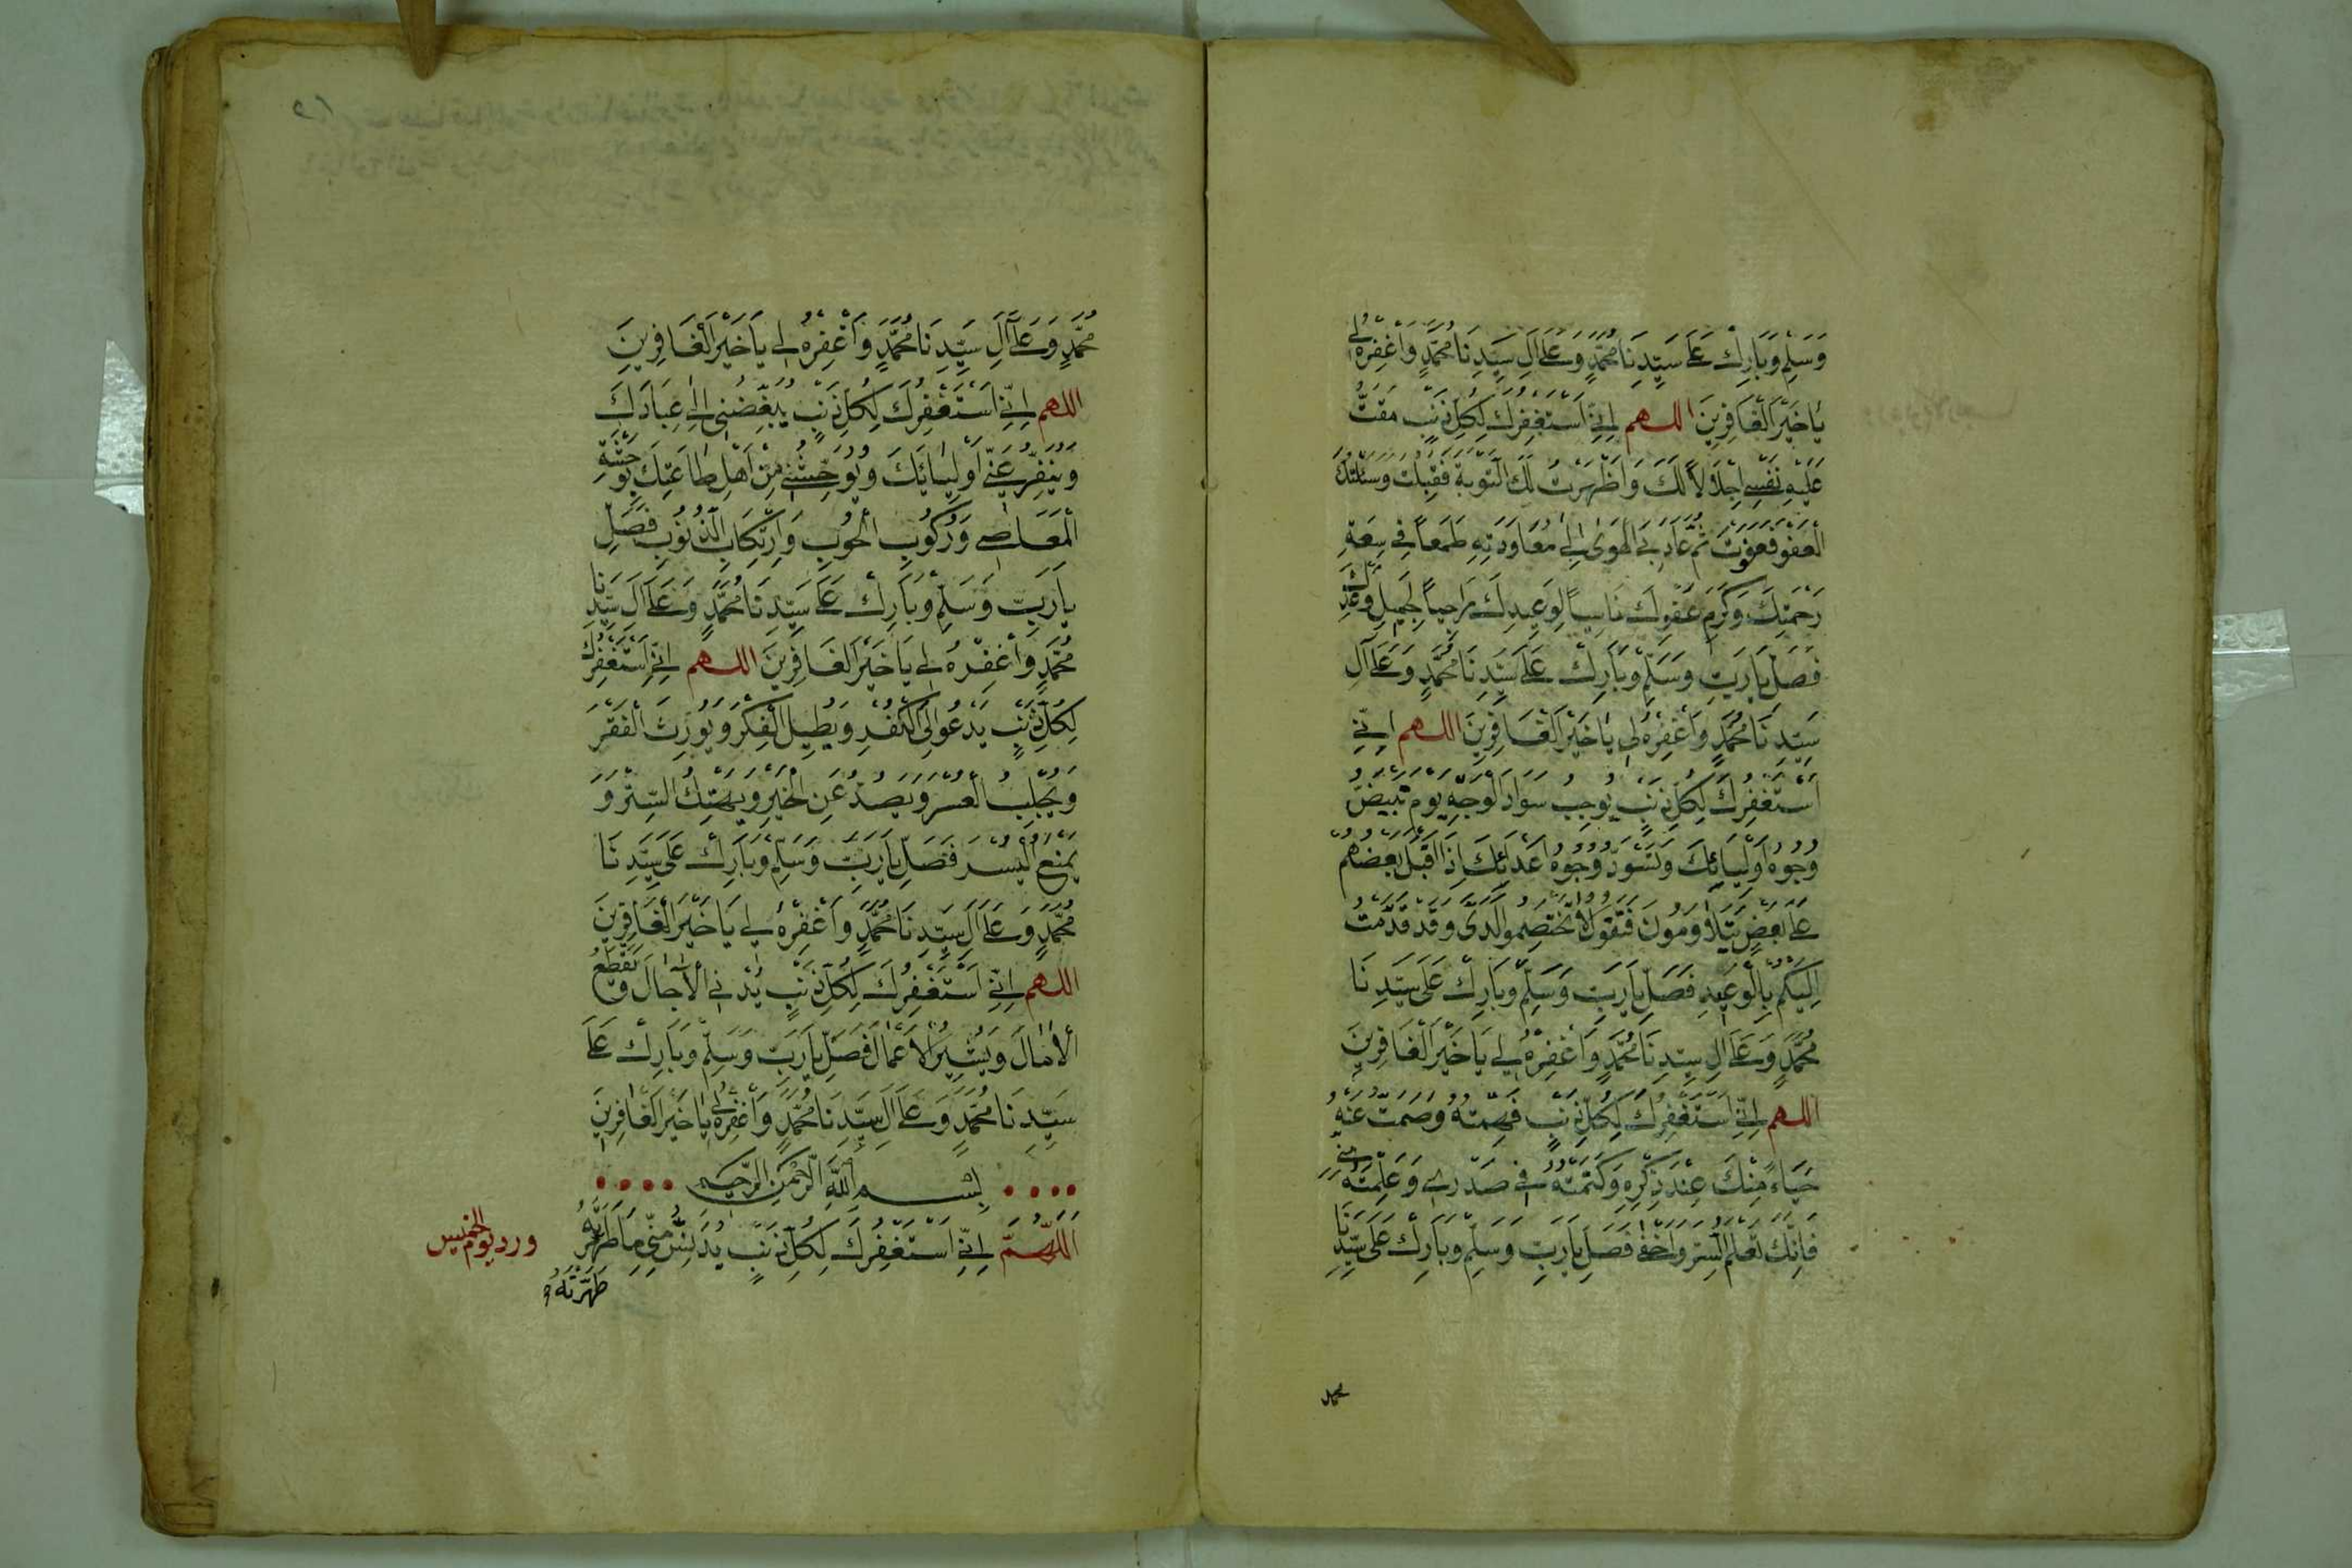 وَسَلِّمْ وَبَارِكْ عَلَى سَيِّدِنَا مُحَمَّدٍ وَعَلَى آلِ سَيِّدِنَا مُحَمَّدٍ وَاغْفِرْهُ لِي
يَا خَيْرَ الْغَافِرِينَ اللهم إِنِّي أَسْتَغْفِرُكَ لِكُلِّ ذَنْبٍ مَقَتُّ
عَلَيْهِ نَفْسِي إِجْلَالًا لَكَ وَأَظْهَرْتُ لَكَ التَّوْبَةَ فَقَبِلْتَ وَسَئَلْتُكَ
الْعَفْوَ فَعَفَوْتَ ثُمَّ عَادَ بِيَ الْهَوَى إِلَى مُعَاوَدَتِهِ طَمَعًا فِي سَعَةِ
رَحْمَتِكَ وَكَرَمِ عَفْوِكَ نَاسِيًا لِوَعِيدِكَ رَاجِيًا لِجَمِيلِ وَعْدِكَ
فَصَلِّ يَا رَبِّ وَسَلِّمْ وَبَارِكْ عَلَى سَيِّدِنَا مُحَمَّدٍ وَعَلَى آلِ
سَيِّدِنَا مُحَمَّدٍ وَاغْفِرْهُ لِي يَا خَيْرَ الْغَافِرِينَ اللهم إِنِّي
أَسْتَغْفِرُكَ لِكُلِّ ذَنْبٍ يُوجِبُ سَوَادَ الْوَجْهِ يَوْمَ تَبْيَضُّ
وُجُوهُ أَوْلِيَائِكَ وَتَسْوَدُّ وُجُوهُ أَعْدَائِكَ إِذَا أَقْبَلَ بَعْضُهُمْ
عَلَى بَعْضٍ يَتَلَاوَمُونَ فَتَقُولُ لَا تَخْتَصِمُوا لَدَيَّ وَقَدْ قَدَّمْتُ
إِلَيْكُمْ بِالْوَعِيدِ فَصَلِّ يَا رَبِّ وَسَلِّمْ وَبَارِكْ عَلَى سَيِّدِنَا
مُحَمَّدٍ وَعَلَى آلِ سَيِّدِنَا مُحَمَّدٍ وَاغْفِرْهُ لِي يَا خَيْرَ الْغَافِرِينَ
اللهم إِنِّي أَسْتَغْفِرُكَ لِكُلِّ ذَنْبٍ فَهِمْتُهُ وَصَمَتُّ عَنْهُ
حَيَاءً مِنْكَ عِنْدَ ذِكْرِهِ وَكَتَمْتُهُ فِي صَدْرِي وَعَلِمْتَهُ مِنِّي
فَإِنَّكَ تَعْلَمُ السِّرَّ وَأَخْفَى فَصَلِّ يَا رَبِّ وَسَلِّمْ وَبَارِكْ عَلَى سَيِّدِنَا
محمد
مُحَمَّدٍ وَعَلَى آلِ سَيِّدِنَا مُحَمَّدٍ وَاغْفِرْهُ لِي يَا خَيْرَ الْغَافِرِينَ
اللهم إِنِّي أَسْتَغْفِرُكَ لِكُلِّ ذَنْبٍ يُبَغِّضُنِي إِلَى عِبَادِكَ
وَيُنَفِّرُ عَنِّي أَوْلِيَائَكَ وَيُوحِشُنِي مِنْ أَهْلِ طَاعَتِكَ بِوَحْشَةِ
الْمَعَاصِي وَرُكُوبِ الْحُوبِ وَارْتِكَابِ الذُّنُوبِ فَصَلِّ
يَا رَبِّ وَسَلِّمْ وَبَارِكْ عَلَى سَيِّدِنَا مُحَمَّدٍ وَعَلَى آلِ سَيِّدِنَا
مُحَمَّدٍ وَاغْفِرْهُ لِي يَا خَيْرَ الْغَافِرِينَ اللهم إِنِّي أَسْتَغْفِرُكَ
لِكُلِّ ذَنْبٍ يَدْعُو إِلَى الْكُفْرِ وَيُطِيلُ الْفِكْرَ وَيُورِثُ الْفَقْرَ
وَيَجْلِبُ الْعُسْرَ وَيَصُدُّ عَنِ الْخَيْرِ وَيَهْتِكُ السِّتْرَ وَ
يَمْنَعُ الْيُسْرَ فَصَلِّ يَا رَبِّ وَسَلِّمْ وَبَارِكْ عَلَى سَيِّدِنَا
مُحَمَّدٍ وَعَلَى آلِ سَيِّدِنَا مُحَمَّدٍ وَاغْفِرْهُ لِي يَا خَيْرَ الْغَافِرِينَ
اللهم إِنِّي أَسْتَغْفِرُكَ لِكُلِّ ذَنْبٍ يُدْنِي الْآجَالَ وَيَقْطَعُ
الْآمَالَ وَيَشِينُ الْأَعْمَالَ فَصَلِّ يَا رَبِّ وَسَلِّمْ وَبَارِكْ عَلَى
سَيِّدِنَا مُحَمَّدٍ وَعَلَى آلِ سَيِّدِنَا مُحَمَّدٍ وَاغْفِرْهُ لِي يَا خَيْرَ الْغَافِرِينَ
بِسْمِ اللَّهِ الرَّحْمَنِ الرَّحِيمِ
اَللَّهُمَّ إِنِّي أَسْتَغْفِرُكَ لِكُلِّ ذَنْبٍ يُدَنِّسُ مِنِّي مَا طَهَّرْتَهُ
ورد يوم الخميس
طَهَّرْتَهُ وَ